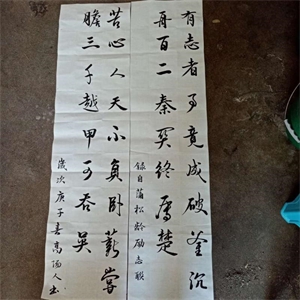 有志者事竟成破釜沉
舟百二秦关终属楚
録自蒲松龄励志联
苦心人天不負卧薪嘗
膽三千越甲可吞吴
歲次庚子